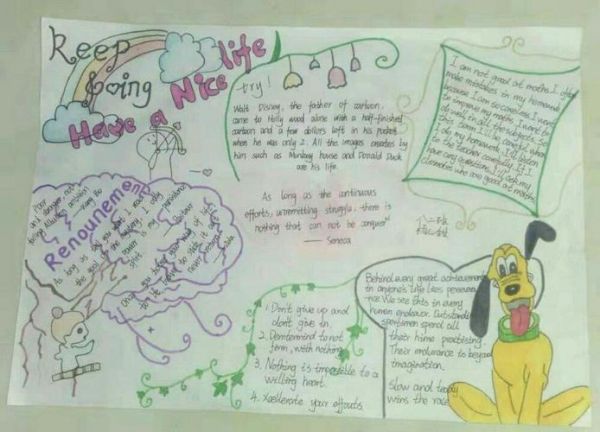 Keep
going
Have a Nice life
try!
Walt Disney, the father of cartoon,
came to Holly wood alone with a half-finished
cartoon and a few dollors left in his pocket
when he was only 2. All the images creates by
him such as Monkey house and Donald Duck
are his life.
As long as the continuous
efforts, unremitting struggle, there is
nothing that can not be conquer"
—— Seneca
I am not good at maths. I often
make mistakes in my homework
because I am so careless. I want
to improve my maths. I want to
do well in all the subjects. So
this term I'll be careful when
I do my homework. I'll listen
to the teacher carefully. If I
have any question, I'll ask my
classmates who are good at maths.
Renounement
As long as day you that I reach
the goal of the mystery I only
power is my persistence
spirit
1. Don't give up and
don't give in.
2. Determind to not
3. Nothing is impossible to a
willing heart.
4. Xcellerate your effouts
Behind every great achievement
in anyone's life lies persevera
-nce. We see this in every
human endeavor. Outstanding
sportsmen spend all
their time practising.
Their endurance to beyond
imagination.
Slow and teady
wins the race